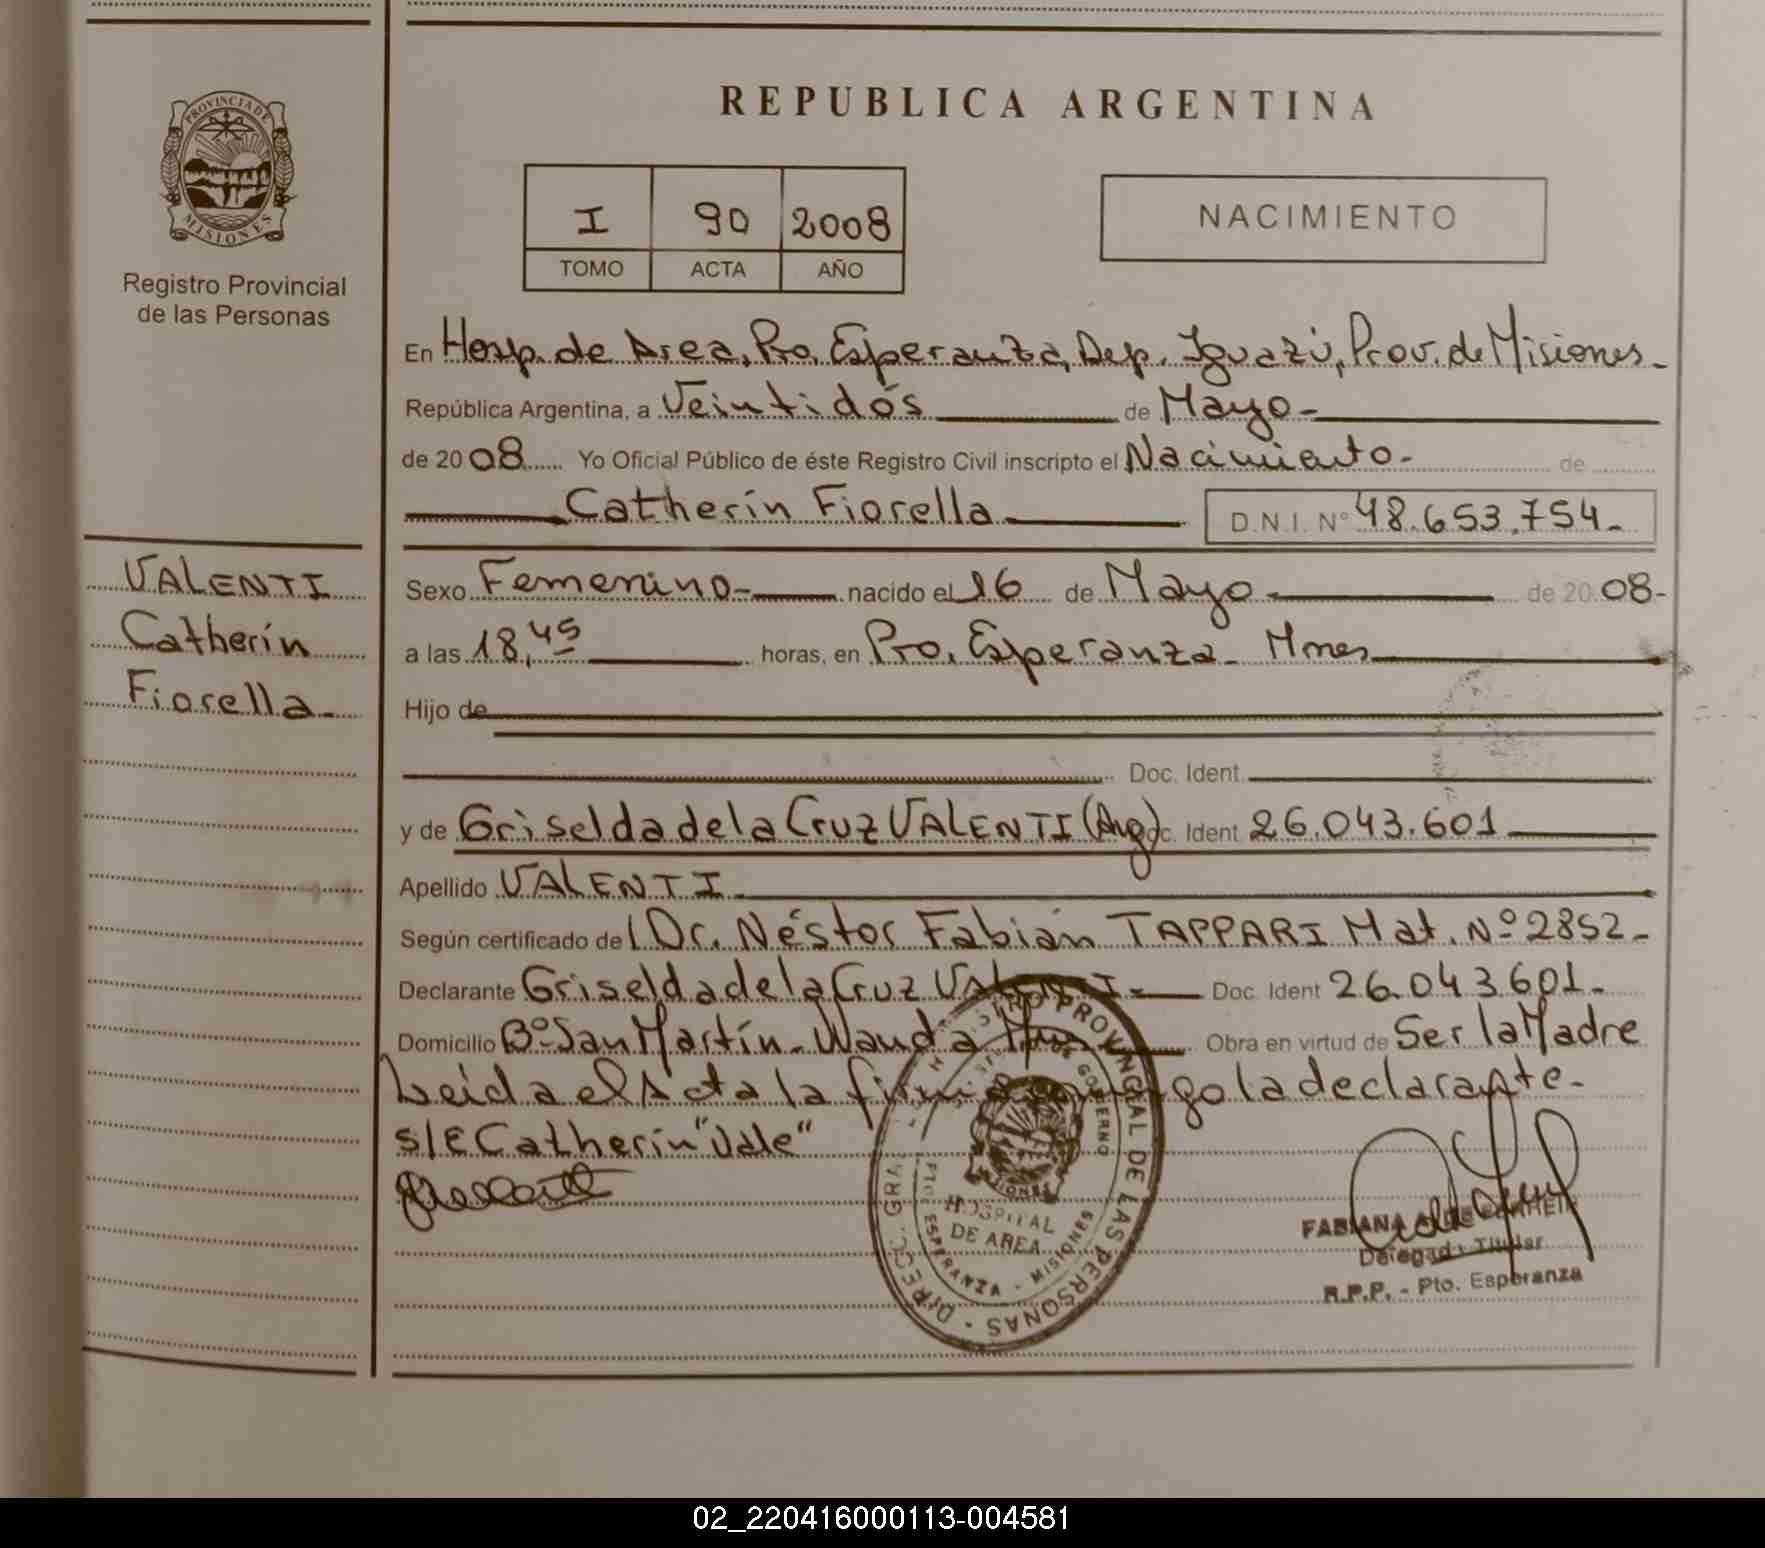 REPUBLICA ARGENTINA
PROVINCIA DE
MISIONES
Registro Provincial
de las Personas
I 90 2008
TOMO ACTA AÑO
NACIMIENTO
En Hosp. de Area, Pto. Esperanza, Dep. Iguazú, Prov. de Misiones-
República Argentina, a Veintidós de Mayo-
de 2008 Yo Oficial Público de éste Registro Civil inscripto el Nacimiento- de
Catherín Fiorella D.N.I. Nº 48.653.754-
VALENTI
Catherín
Fiorella-
Sexo Femenino- nacido el 16 de Mayo- de 2008-
a las 18,45 horas, en Pto. Esperanza- Mnes
Hijo de
Doc. Ident.
y de Griselda de la Cruz VALENTI (Arg) Doc. Ident 26.043.601
Apellido VALENTI-
Según certificado del Dr. Néstor Fabián TAPPARI Mat. Nº 2852-
Declarante Griselda de la Cruz VALENTI- Doc. Ident 26.043.601-
Domicilio Bº San Martín- Wanda Mnes Obra en virtud de Ser la Madre
Leída el Acta la firma conmigo la declarante-
S/E Catherín "Vale"
REGISTRO PROVINCIAL DE LAS PERSONAS
HOSPITAL
DE AREA
PTO. ESPERANZA - MISIONES
FABIANA
Delegada Titular
R.P.P. - Pto. Esperanza
02_220416000113-004581